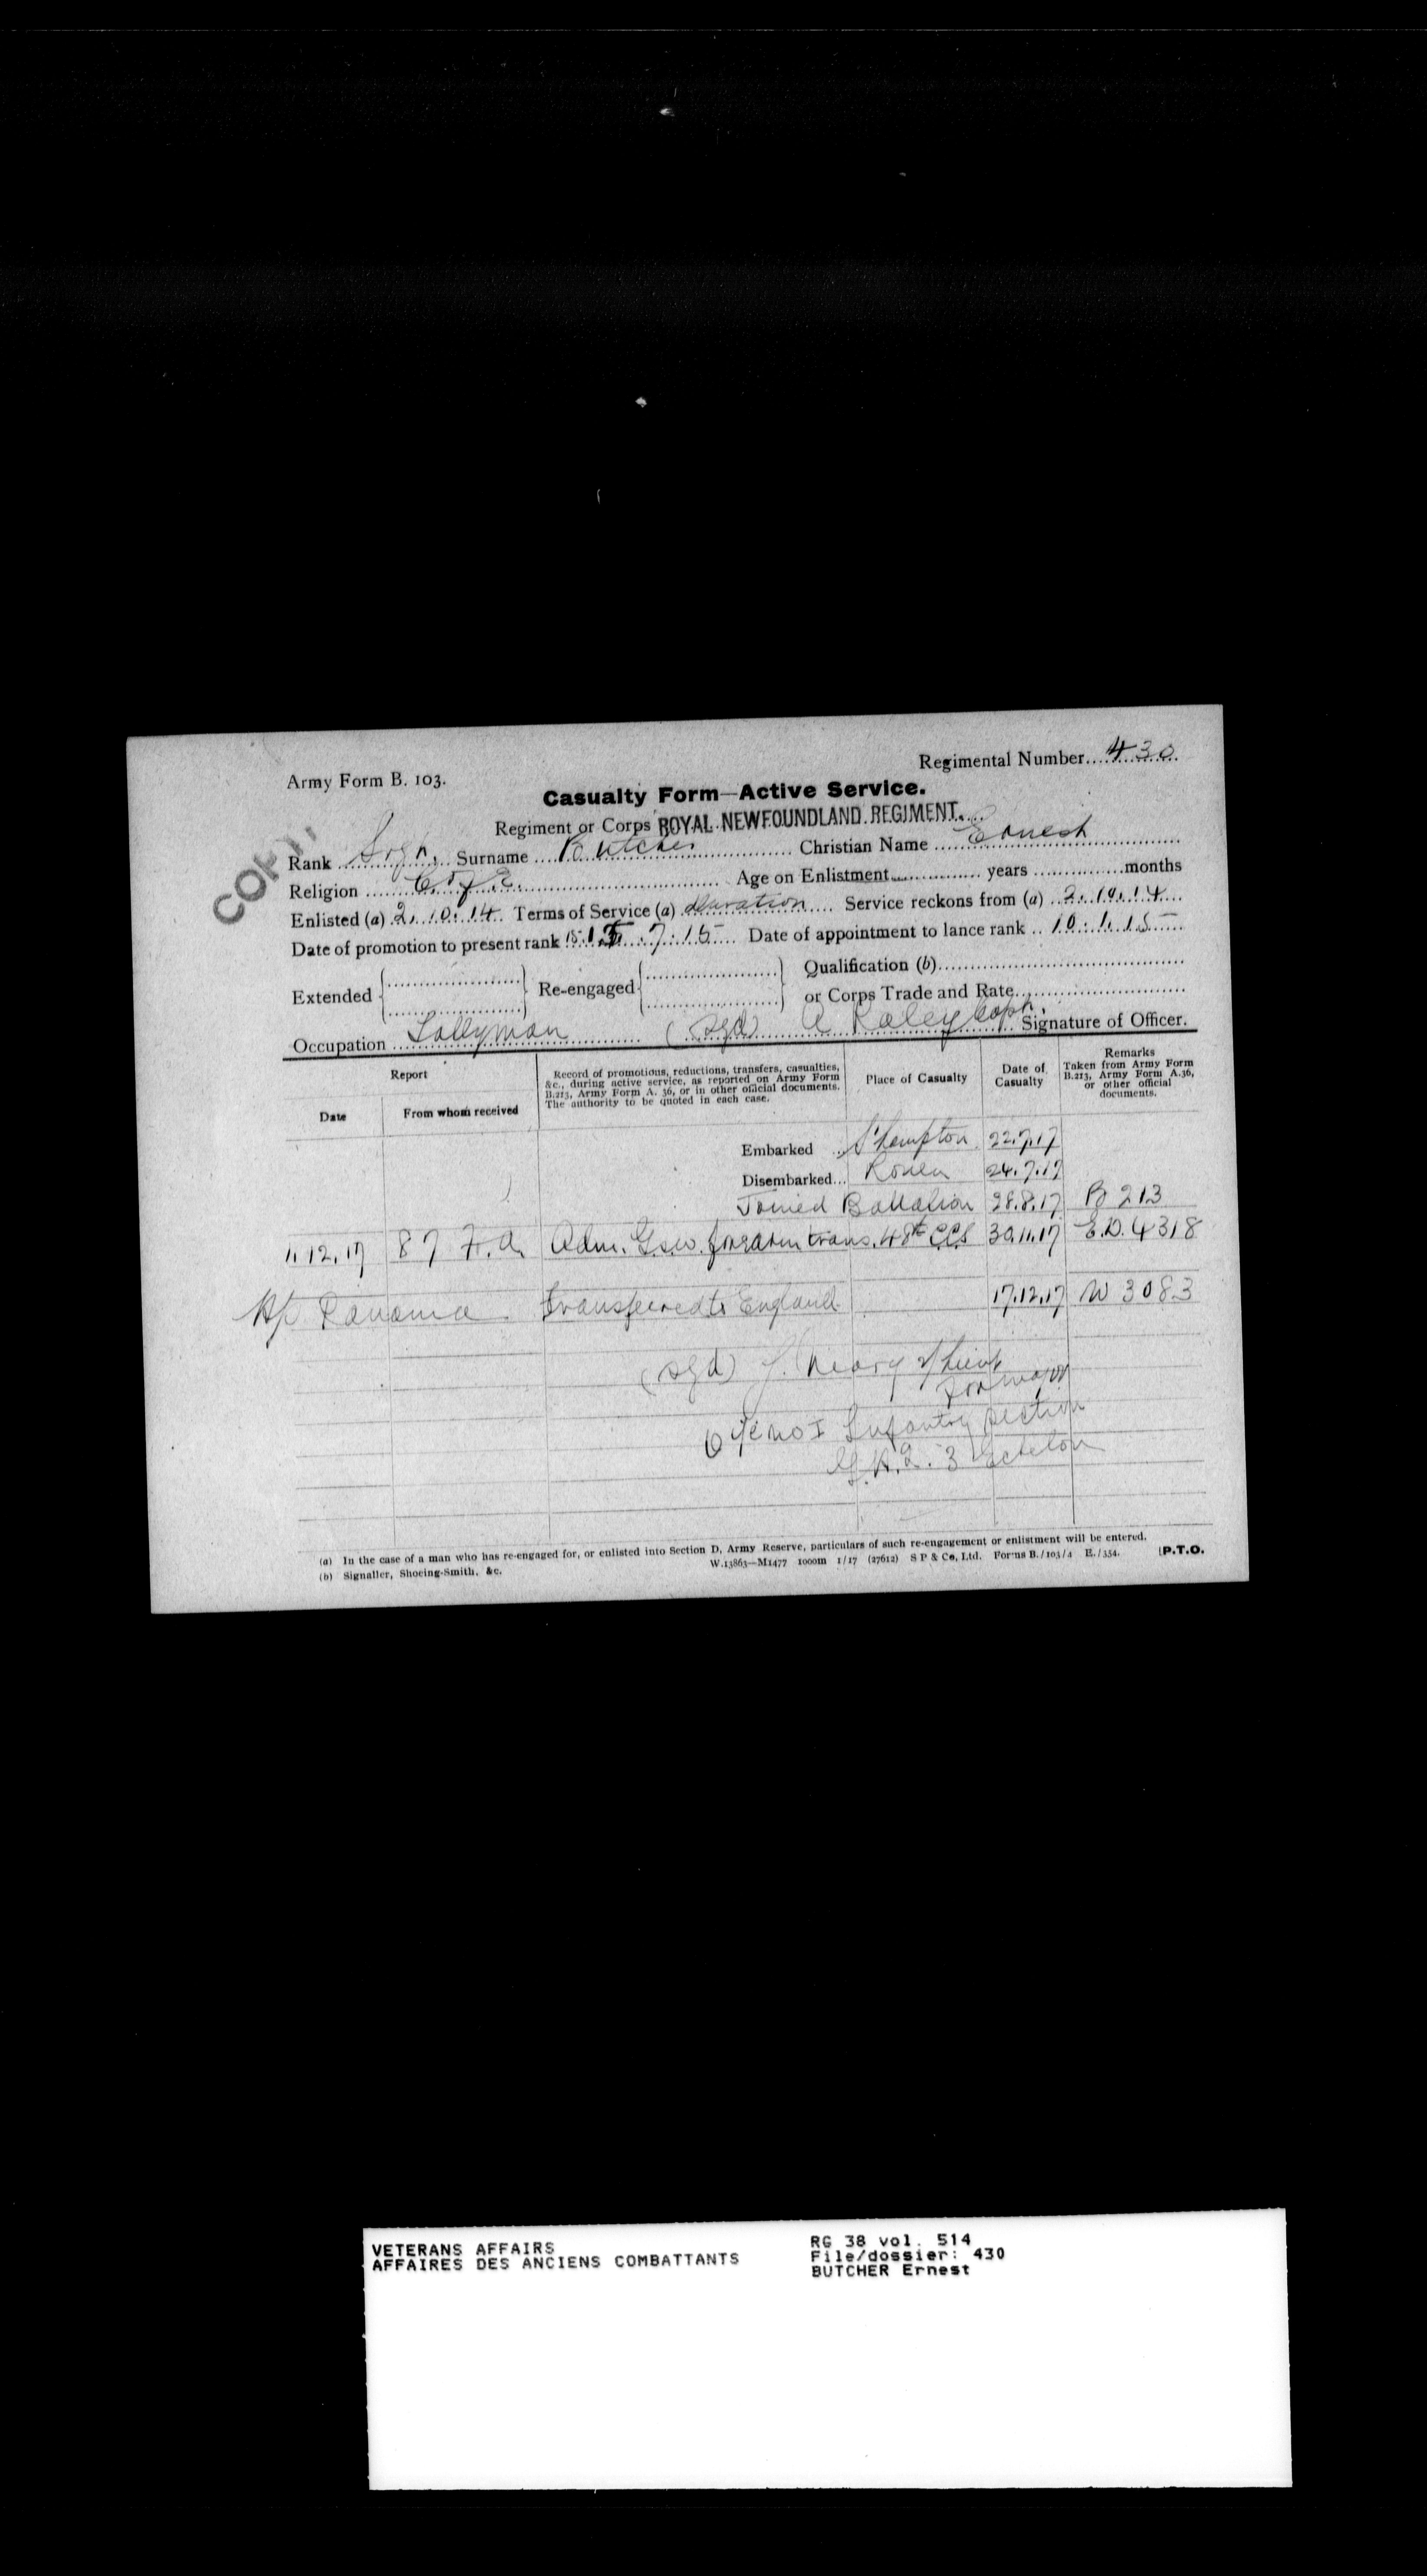 Regimental Number....430
Army Form B. 103.
Casualty Form—Active Service.
Regiment or Corps ROYAL NEWFOUNDLAND REGIMENT.
COPY.
Rank Surname Butcher Christian Name Ernest
Religion C of E. Age on Enlistment years months
Enlisted (a) 2.10.14. Terms of Service (a) Duration Service reckons from (a) 2.10.14
Date of promotion to present rank 15.7.15 Date of appointment to lance rank 10.1.15
Extended Re-engaged Qualification (b)
or Corps Trade and Rate
Occupation Tallyman (sgd) A Raley Capt. Signature of Officer.
Report
Date From whom received
Record of promotions, reductions, transfers, casualties, &c., during active service, as reported on Army Form B.213, Army Form A. 36, or in other official documents. The authority to be quoted in each case.
Place of Casualty
Date of Casualty
Remarks Taken from Army Form B.213, Army Form A.36, or other official documents.
Embarked .. S'hampton 22.7.17
Disembarked... Rouen 24.7.17
Joined Battalion 28.8.17 B 213
1.12.17 87 F.A. Adm. G.S.W. forearm trans. 48th CCS 30.11.17 E.D. 4318
H/S Panama transferred to England 17.12.17 W 3083
(sgd) J. Neary 2/Lieut
For major
O i/c No I Infantry Section
G.H.Q. 3 Echelon
(a) In the case of a man who has re-engaged for, or enlisted into Section D, Army Reserve, particulars of such re-engagement or enlistment will be entered.
(b) Signaller, Shoeing-Smith, &c. W.13863—M1477 1000m 1/17 (27612) S P & Co, Ltd. Forms B./103/4 E./354. [P.T.O.
VETERANS AFFAIRS RG 38 vol. 514
AFFAIRES DES ANCIENS COMBATTANTS File/dossier: 430
BUTCHER Ernest